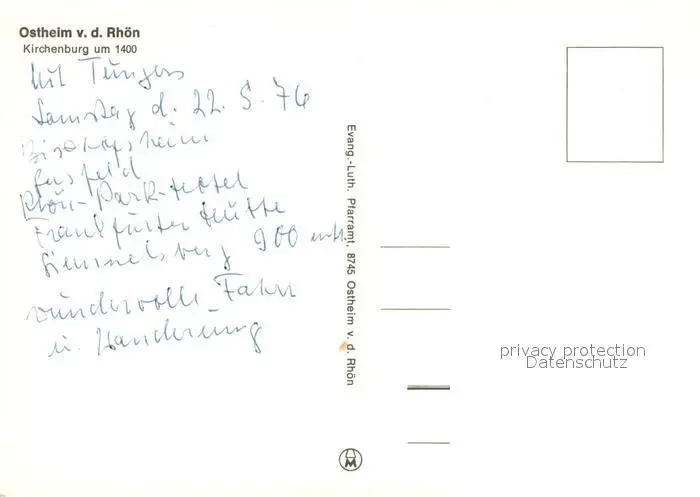 Ostheim v. d. Rhön
Kirchenburg um 1400
Mit Tüngers
Samstag d. 22. 5. 76
Bischofsheim
Rhön-Park-Hotel
Frankfurter Hütte
Himmelsberg 900 mtr.
wundervolle Fahrt
u. Wanderung
Evang.-Luth. Pfarramt, 8745 Ostheim v. d. Rhön
privacy protection
Datenschutz
M